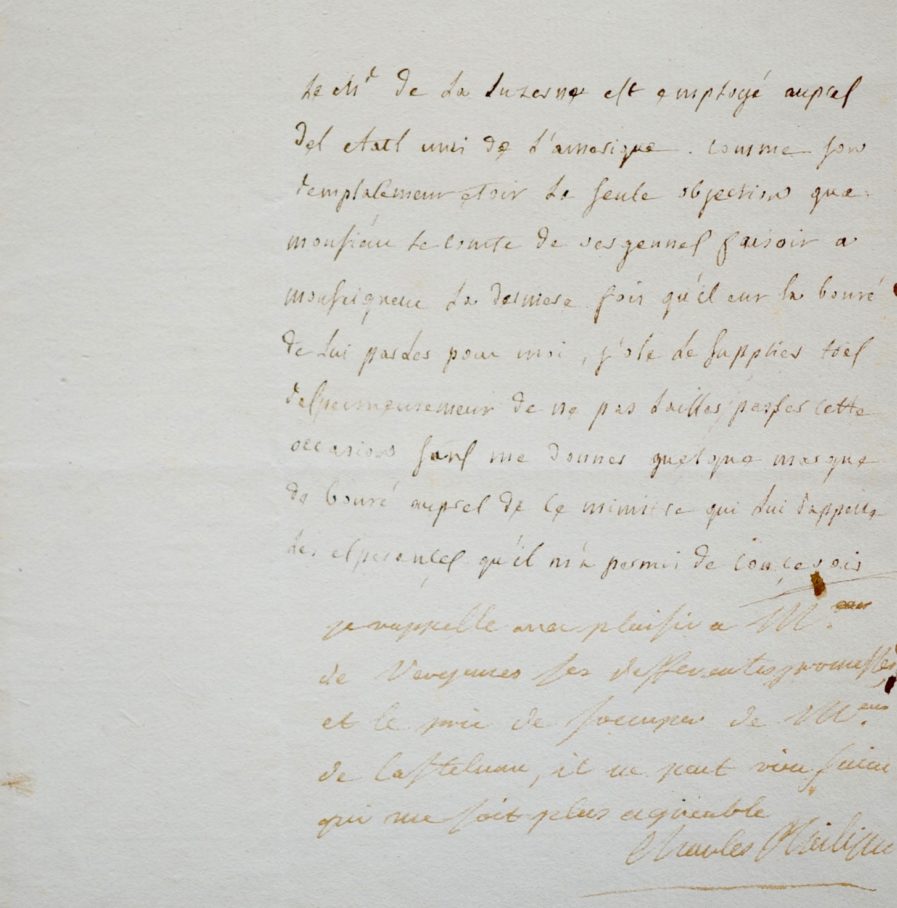 Le Mr de la Luzerne est employé aupres
des etats unis de l'amerique. comme son
remplacement etoit la seule objection que
monsieur le comte de vergennes faisoit a
monseigneur la derniere fois qu'il eut la bonté
de lui parler pour moi, j'ose le supplier tres
de ne pas laisser passer cette
occasion sans me donner quelque marque
de bonté aupres de ce ministre qui lui rappelle
les esperances qu'il m'a permis de concevoir
je rappelle avec plaisir a Mr.
de Vergennes ses differentes promesses
et le prie de s'occuper de Mr.
de Castelnau, il ne peut rien faire
qui me soit plus agréable
Charles Philippe